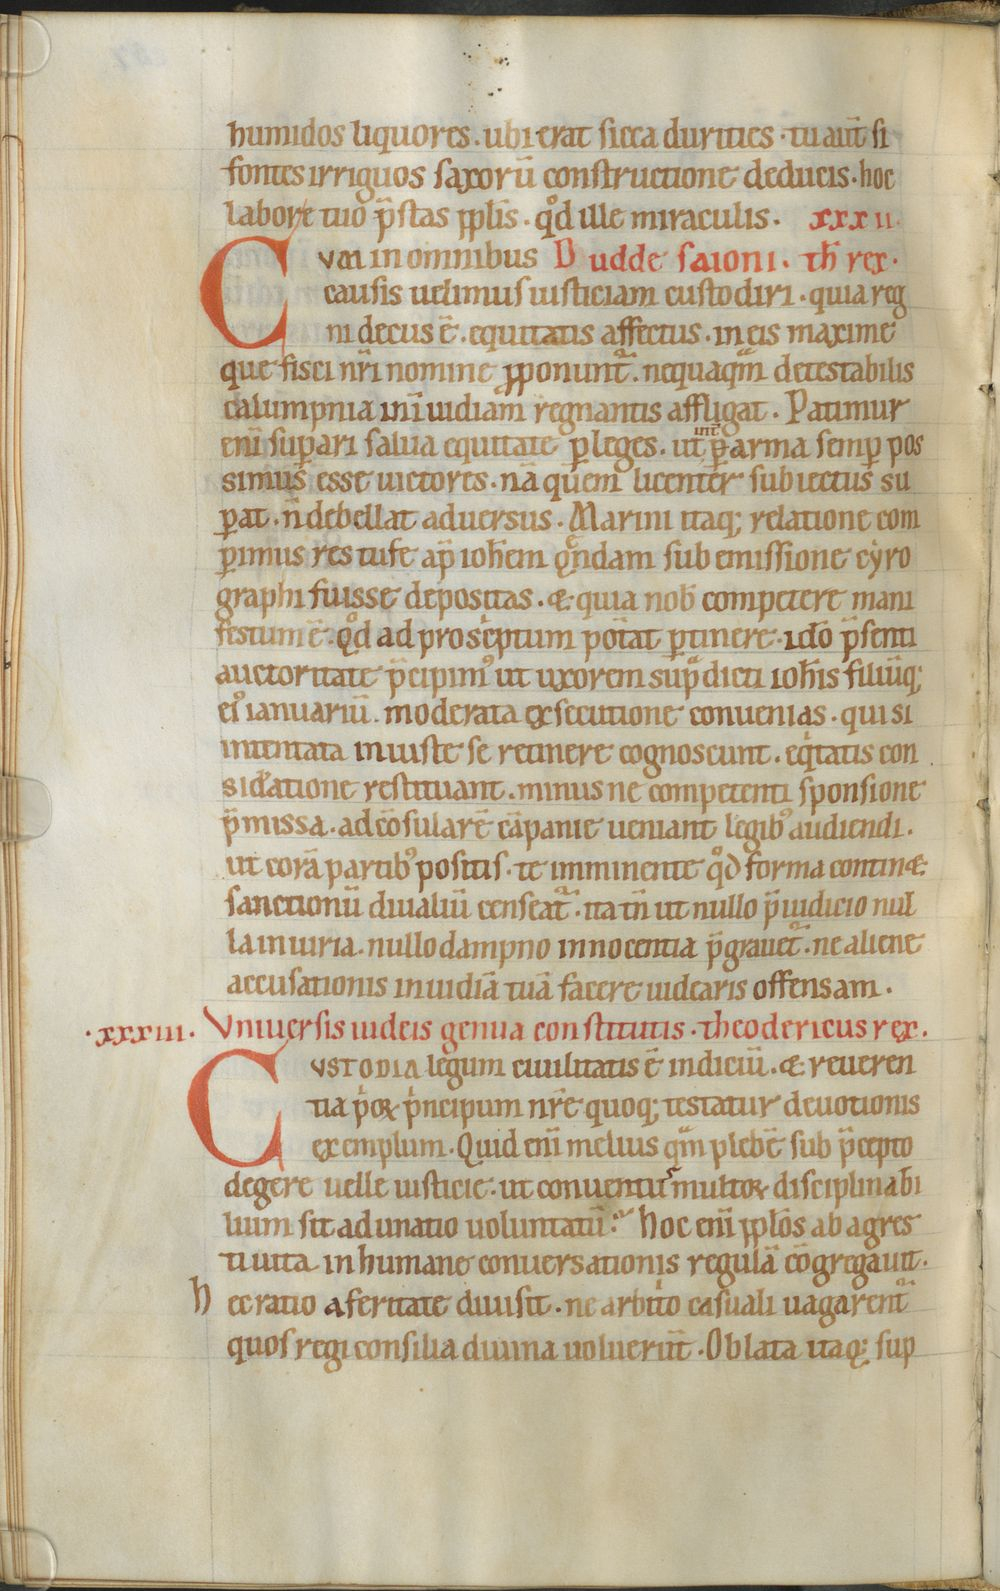 humidos liquores. ubi erat sicca durities. tu aut̄ si
fontes irriguos saxorū constructione deducis. hoc
labore tuo p̄stas ꝓplis̄. qd̊ ille miraculis. xxxii.
Cvm in omnibus Dudde saioni. th̄ rex.
causis uelimus iusticiam custodiri. quia reg
ni decus ē. equitatis affectus. in eis maxime
que fisci nr̄i nomine ꝓponunt᷑. nequaqͫ detestabilis
calumpnia in inuidiam regnantis affligat. Patimur
eni̅ suꝑari salua equitate ꝑ leges. ut int̄ ꝑ arma semꝑ pos
simus esse uictores. nā quem licenter subiectus su
ꝑat. n̄ debellat aduersus. Marini itaq; relatione com
ꝑimus res tufe ap̄ ioh̄em qͦndam sub emissione cyro
graphi fuisse depositas. & quia nob̄ competere mani
festum ē. qd̊ ad proscͥptum pot̄at ꝑtinere. ido̅ p̄senti
auctoritate p̄cipimꝰ ut uxorem sup̄dicti ioh̄is filiūq;
eiꝰ ianuariū. moderata exsecutione conuenias. qui si
intentata iniuste se retinere cognoscunt. eqͥtatis con
sid̄atione restituant. minus ne competenti sponsione
p̄missa. ad cōsularē cāpanie ueniant legibꝰ audiendi.
ut corā partibꝰ positis. te imminente qd̊ forma contin&
sanctionū diualiū censeat᷑. ita tn̄ ut nullo p̄iudicio nul
la iniuria. nullo dampno innocentia p̄grauet᷑. ne aliene
accusationis inuidiā tuā facere uidearis offensam.
.xxxiii. Vniuersis iudeis genua constitutis. theodericus rex.
Cvstodia legum ciuilitatis ē indiciū. & reueren
tia pͥoꝝ pͥncipum nr̄e quoq; testatur deuotionis
exemplum. Quid eni̅ melius qͫ plebē sub p̄cepto
degere uelle iusticie. ut conuentuͬ multoꝝ disciplinabi
lium sit adunatio uoluntatū? Hoc eni̅ ꝓplōs ab agres
ti uita in humane conuersationis regulā cōgregauit.
hec ratio a feritate diuisit. ne arbitͥo casuali uagarent᷑
quos regi consilia diuina uoluerūt. Oblata itaq; sup